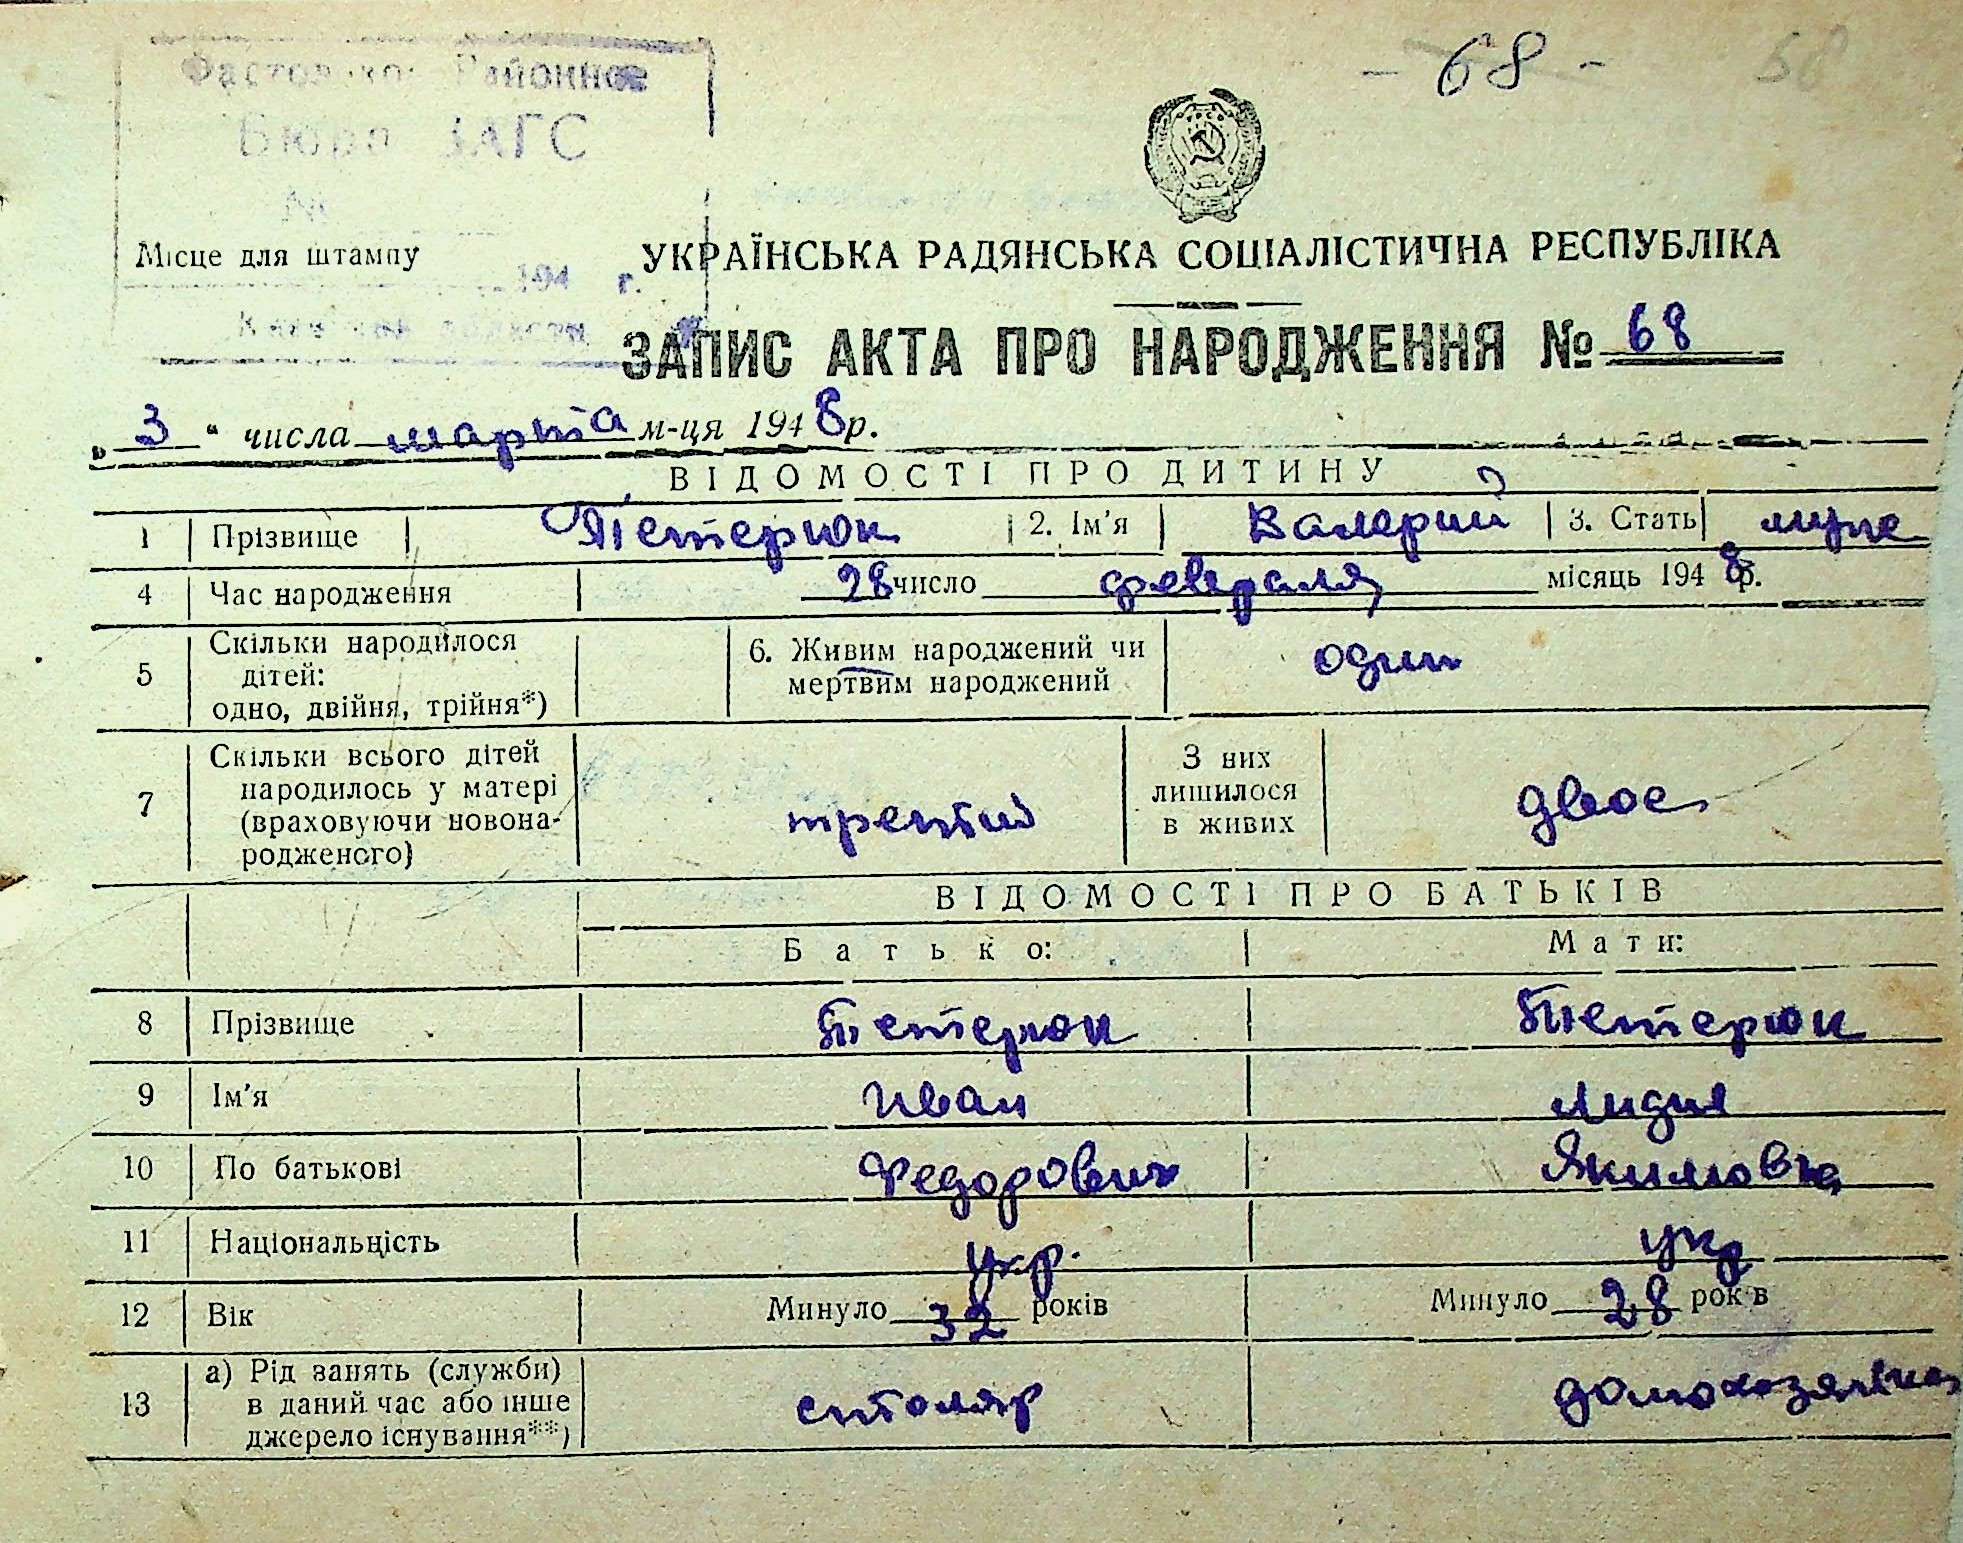 - 68 - 58
Районное
Бюро ЗАГС
№
Місце для штампу
194 г.
области
УКРАЇНСЬКА РАДЯНСЬКА СОЦІАЛІСТИЧНА РЕСПУБЛІКА
ЗАПИС АКТА ПРО НАРОДЖЕННЯ № 68
„ 3 “ числа марта м-ця 1948 р.
ВІДОМОСТІ ПРО ДИТИНУ
1 Прізвище Тетерюк 2. Ім'я Валерий 3. Стать муже
4 Час народження 28 число февраля місяць 1948 р.
5 Скільки народилося
дітей:
одно, двійня, трійня*)
6. Живим народжений чи
мертвим народжений
один
7 Скільки всього дітей
народилось у матері
(враховуючи новона-
родженого)
третий
З них
лишилося
в живих
двое
ВІДОМОСТІ ПРО БАТЬКІВ
Батько: Мати:
8 Прізвище Тетерюк Тетерюк
9 Ім'я Иван Лидия
10 По батькові Федорович Якимовна
11 Національність укр. укр
12 Вік Минуло 32 років Минуло 28 рок в
13 а) Рід занять (служби)
в даний час або інше
джерело існування**)
столяр домохозяйка